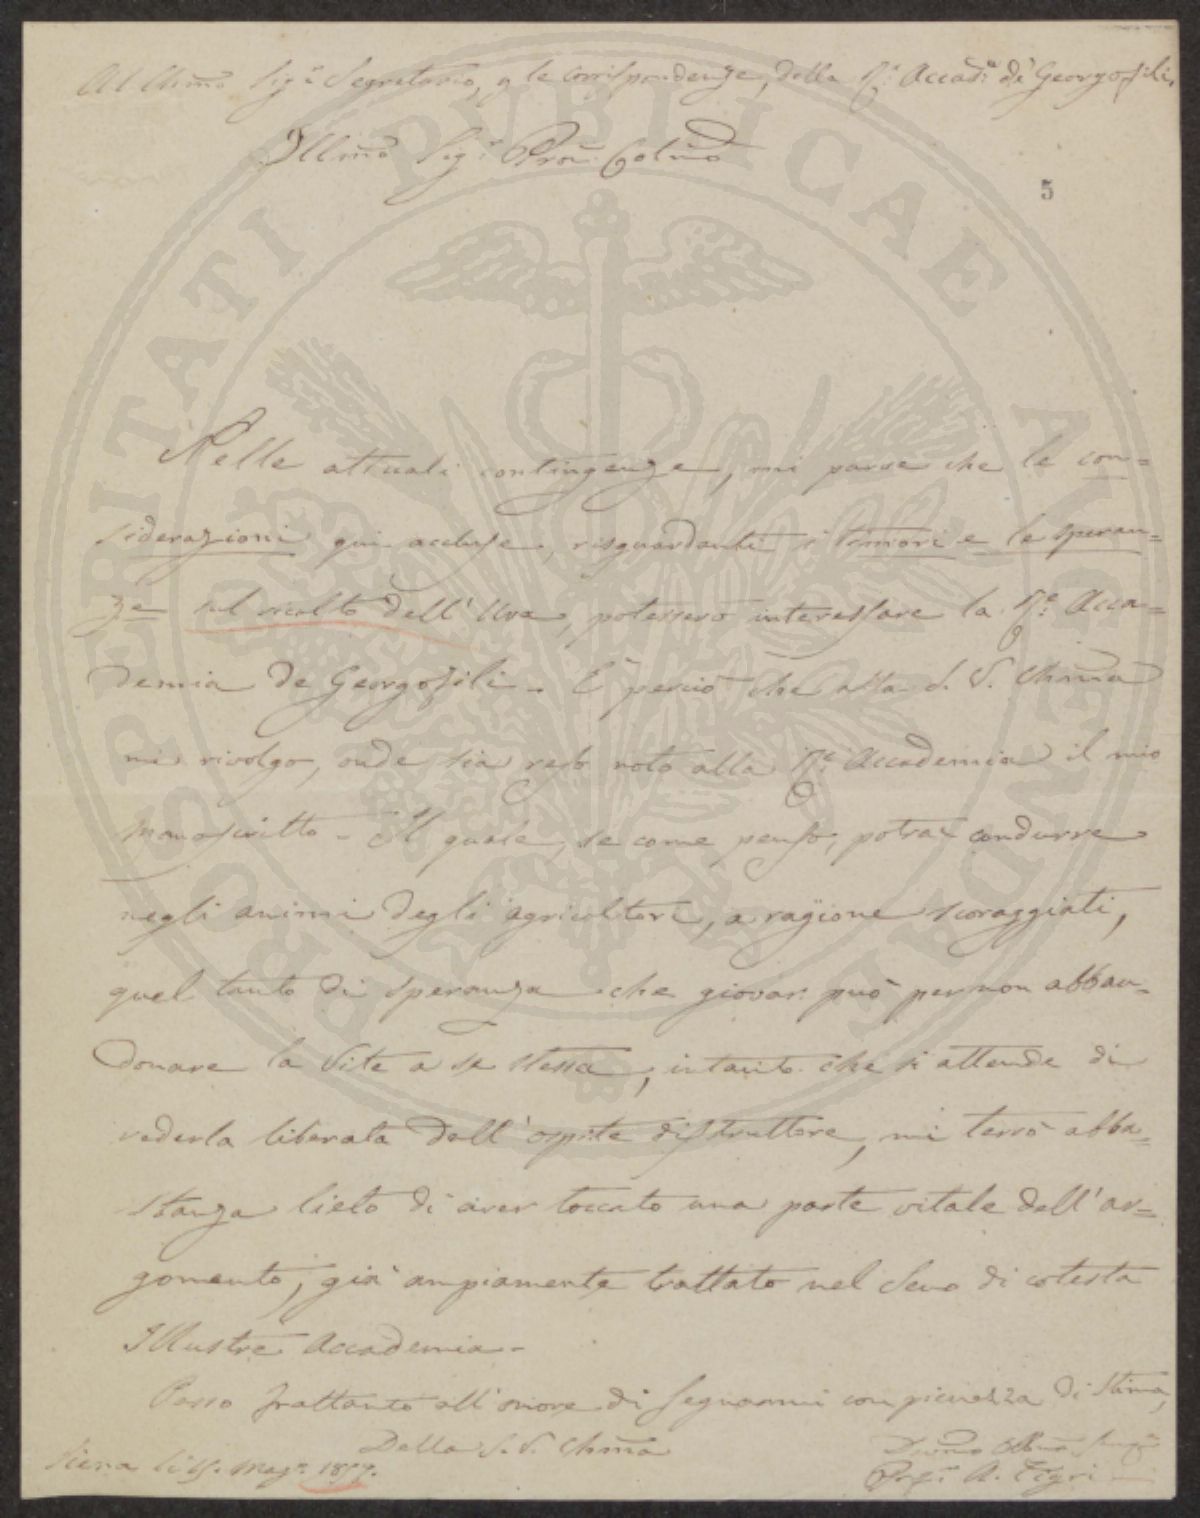 Al Chmo Sigr Segretario, p le corrispondenze, della R. Accada de' Georgofili.
Illmo Sigr Pron Colmo
5
PROSPERITATI PUBLICAE AUGENDAE
Nelle attuali contingenze, mi parve che le con=
siderazioni qui accluse, risguardanti i timori e le speran=
ze sul raccolto dell'Uva, potessero interessare la Re. Acca=
demia de Georgofili. E' perciò che alla S. V. Chma
mi rivolgo, onde sia reso noto alla Re. Accademia il mio
manoscritto - Il quale, se come penso, potrà condurre
negli animi degli agricoltori, a ragione scoraggiati,
quel tanto di speranza che giovar può per non abban=
donare la Vite a se stessa, intanto che si attende di
vederla liberata dall'ospite distruttore, mi terrò abba=
stanza lieto di aver toccato una parte vitale dell'ar=
gomento, già ampiamente trattato nel seno di cotesta
Illustre Accademia -
Passo frattanto all'onore di segnarmi con pienezza di stima,
Della S. V. Chma
Siena li 15. Mago 1857.
Devmo Obbmo
Profr A. Tigri